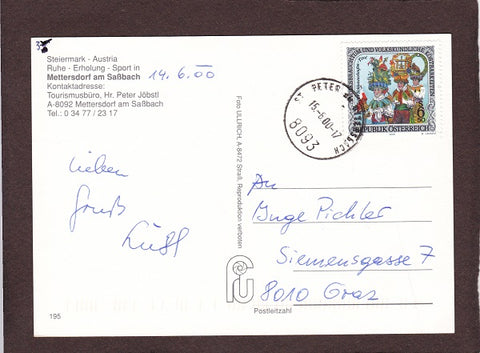 Steiermark - Austria
Ruhe - Erholung - Sport in
Mettersdorf am Saßbach 14.6.00
Kontaktadresse:
Tourismusbüro, Hr. Peter Jöbstl
A-8092 Mettersdorf am Saßbach
Tel.: 0 34 77 / 23 17
lieben
Gruß
Foto ULLRICH, A-8472 Straß, Reproduktion verboten
ST. PETER AM OTTERSBACH
15.-6.00-17
8093
BRAUCHTUM UND VOLKSKUNDLICHE KOSTBARKEITEN
REPUBLIK ÖSTERREICH
An
Inge Pichler
Siemensgasse 7
8010 Graz
Postleitzahl
195